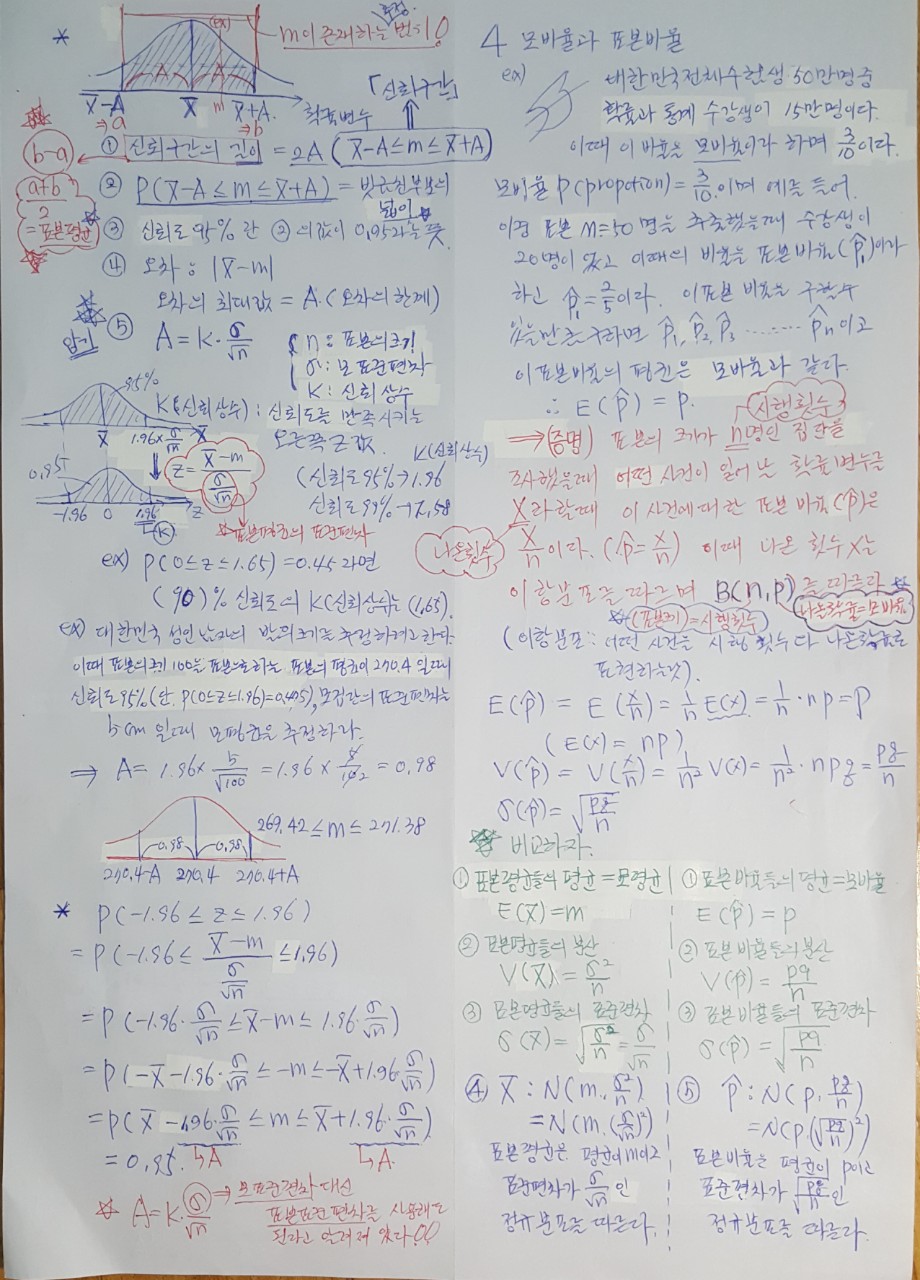 * m이 존재하는 범위!
추정
X̄-A X̄ m X̄+A 확률변수 「신뢰구간」
⇒a ⇒b
b-a ① 신뢰구간의 길이 = 2A (X̄-A≤m≤X̄+A)
a+b/2 = 표본평균
② P(X̄-A≤m≤X̄+A) = 빗금친부분의 넓이
③ 신뢰도 95%란 ②의값이 0.95라는 뜻.
④ 오차: |X̄-m|
오차의 최대값 = A. (오차의 한계)
암기 ⑤ A = K·σ/√n
n: 표본의크기
σ: 모표준편차
K: 신뢰상수
95%
K(신뢰상수): 신뢰도를 만족시키는
오른쪽 Z값.
X̄ 1.96×σ/√n X̄
0.95
Z = (X̄-m)/(σ/√n)
K(신뢰상수)
(신뢰도 95%→1.96
신뢰도 99%→2.58
-1.96 0 1.96 Z
K
표본평균의 표준편차
ex) P(0≤Z≤1.65)=0.45라면
(90)% 신뢰도의 K(신뢰상수)는 (1.65).
ex) 대한민국 성인 남자의 발의크기를 추정하려고한다.
이때 표본의크기 100을 표본으로하는 표본의 평균이 270.4 일때
신뢰도 95%(단, P(0≤Z≤1.96)=0.475), 모집단의 표준편차는
5cm 일때 모평균을 추정하라.
⇒ A = 1.96×5/√100 = 1.96×5/10 2 = 0.98
269.42≤m≤271.38
0.98 0.98
270.4-A 270.4 270.4+A
* P(-1.96≤Z≤1.96)
= P(-1.96≤(X̄-m)/(σ/√n)≤1.96)
= P(-1.96·σ/√n≤X̄-m≤1.96·σ/√n)
= P(-X̄-1.96·σ/√n≤-m≤-X̄+1.96·σ/√n)
= P(X̄-1.96·σ/√n≤m≤X̄+1.96·σ/√n)
= 0.95. ↳A ↳A
☆ A=K·σ/√n ⇒ 모표준편차 대신
표본표준편차를 사용해도
된다고 알려져 있다!!
4 모비율과 표본비율
ex) 대한민국전체수험생 50만명중
확률과 통계 수강생이 15만명이다.
이때 이 비율을 모비율이라 하며 3/10이다.
모비율 P(propotion) = 3/10.이며 예를 들어
이중 표본 n=50 명을 추출했을때 수강생이
20명이 있고 이때의 비율을 표본비율(p̂₁)이라
하고 p̂₁=2/5이다. 이표본 비율을 구할수
있을만큼구하면 p̂₁, p̂₂, p̂₃ ········ p̂n 이고
이 표본비율의 평균은 모비율과 같다.
∴ E(p̂) = p.
시행횟수
⇒(증명) 표본의 크기가 n명인 집단을
조사했을때 어떤 사건이 일어난 확률변수를
X라 할때 이 사건에대한 표본 비율(p̂)은
나온횟수 X/n이다. (p̂=X/n) 이때 나온 횟수 X는
이항분포를 따르며 B(n,p)를 따른다.
(표본크기)=시행횟수 나온확률=모비율
(이항분포: 어떤 사건을 시행 횟수와 나온확률로
표현하는것).
E(p̂) = E(X/n) = 1/n E(X) = 1/n·np = p
(E(X) = np)
V(p̂) = V(X/n) = 1/n² V(X) = 1/n²·npq = pq/n
σ(p̂) = √(pq/n)
비교하자.
① 표본평균들의 평균=모평균
E(X̄)=m
② 표본평균들의 분산
V(X̄) = σ²/n
③ 표본평균들의 표준편차
σ(X̄) = √(σ²/n) = σ/√n
④ X̄: N(m, σ²/n)
= N(m, (σ/√n)²)
표본평균은 평균이 m이고
표준편차가 σ/√n인
정규분포를 따른다.
① 표본비율들의 평균=모비율
E(p̂)=p
② 표본비율들의분산
V(p̂) = pq/n
③ 표본비율들의 표준편차
σ(p̂) = √(pq/n)
⑤ p̂: N(p, pq/n)
= N(p, (√(pq/n))²)
표본비율은 평균이 p이고
표준편차가 √(pq/n)인
정규분포를 따른다.